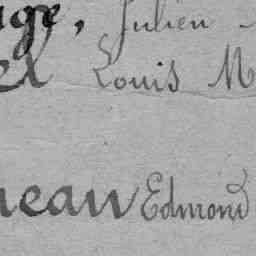 age, Julien
el Louis M
neau Edmond